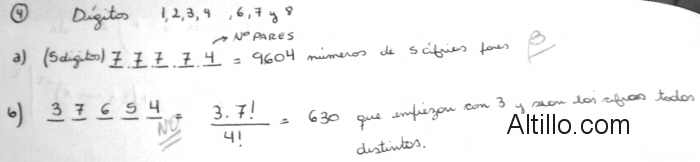 ④ Dígitos 1, 2, 3, 4 , 6, 7 y 8
→ Nº PARES
a) (5 digitos) 7 . 7 . 7 . 7 . 4 = 9604 números de 5 cifras pares B
b) 3 7 6 5 4 = 3.7! / 4! = 630 que empiezan con 3 y sean las cifras todas
NO
distintas.
Altillo.com